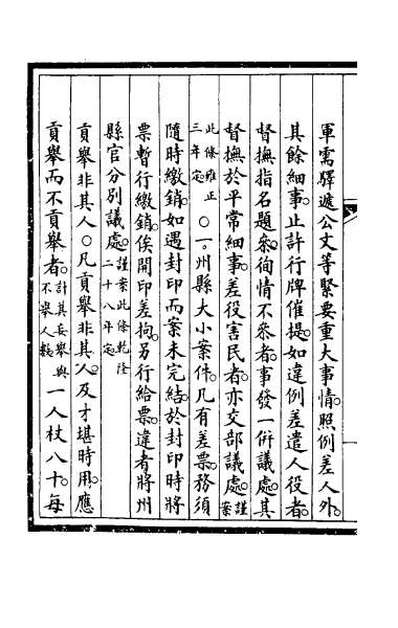 軍需驛遞公文等緊要重大事情。照例差人外。
其餘細事。止許行牌催提。如違例差遣人役者。
督撫指名題參。徇情不參者。事發一倂議處。其
督撫於平常細事。差役害民者。亦交部議處。謹案
此條雍正三年定 〇一。州縣大小案件。凡有差票。務須
隨時繳銷。如遇封印而案未完結。於封印時將
票暫行繳銷。俟開印差拘。另行給票。違者將州
縣官分別議處。謹案此條乾隆二十八年定
貢舉非其人〇凡貢舉非其人。及才堪時用。應
貢舉而不貢舉者。計其妄舉與不舉人數 一人杖八十。每